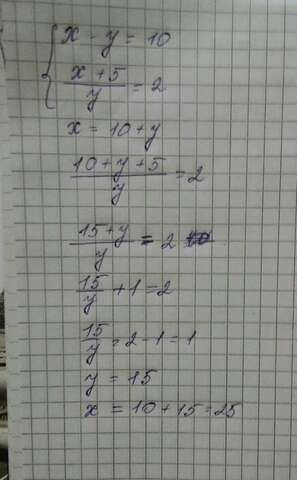 x - y = 10
x + 5 / y = 2
x = 10 + y
10 + y + 5 / y = 2
15 + y / y = 2
15 / y + 1 = 2
15 / y = 2 - 1 = 1
y = 15
x = 10 + 15 = 25